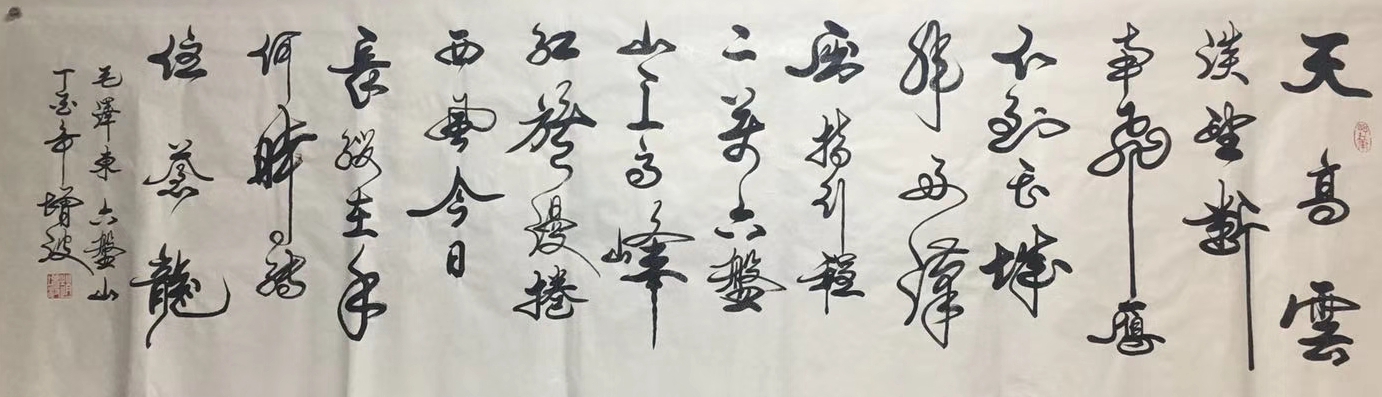 天高雲
淡望斷
南飛鴈
不到长城
非好漢
屈指行程
二萬六盤
山上高峰
紅旗漫捲
西風今日
長纓在手
何時縛
住蒼龍
毛澤東六盤山
丁酉年增波